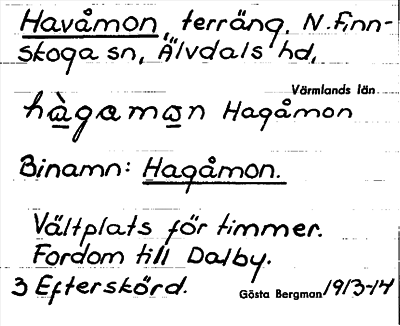 Havåmon, terräng. N. Finn-
skoga sn, Älvdals hd,
Värmlands län
hàgamon Hagåmon
Binamn: Hagåmon.
Vältplats för timmer.
Fordom till Dalby.
3 Efterskörd. Gösta Bergman 1913-14